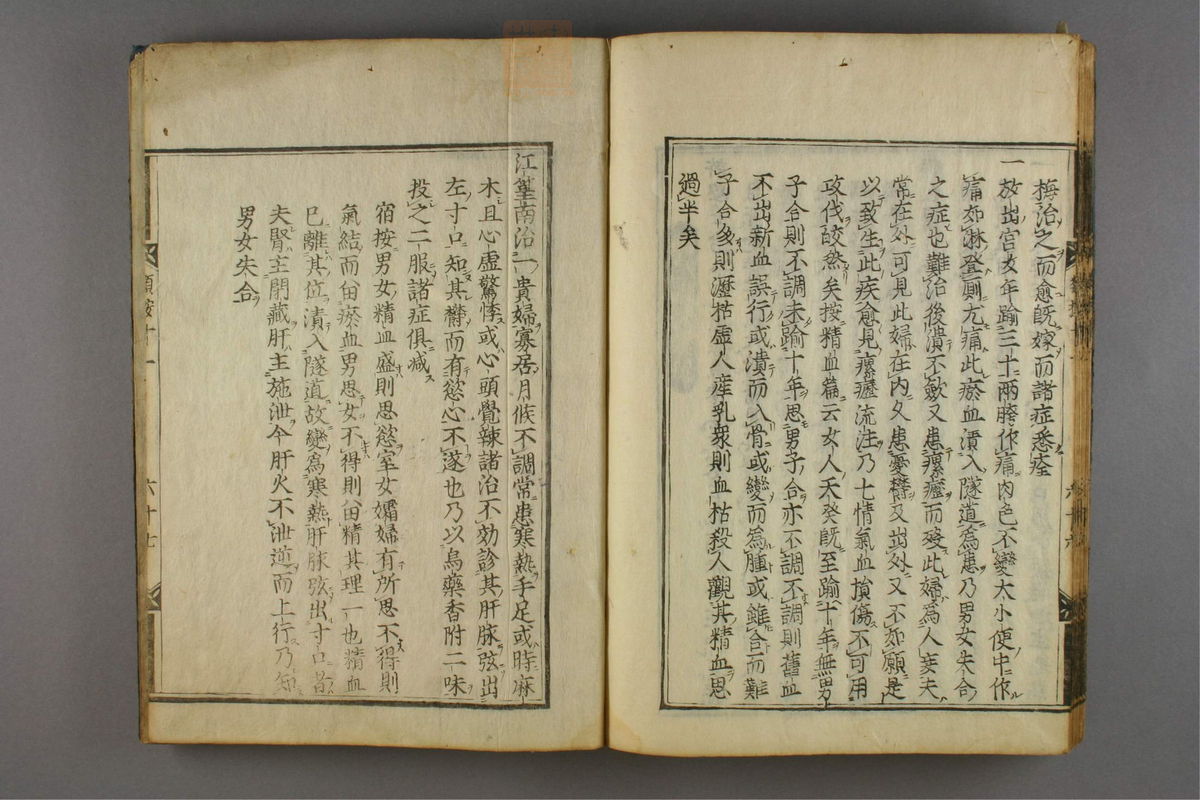 梅治之而愈既嫁而諸症悉痊
一放出宮女年踰三十兩胯作痛肉色不變大小便中作
痛如淋登廁尤痛此瘀血漬入隧道為患乃男女失合
之症也難治後潰不斂又患瘰癧而殁此婦為人妾夫
常在外可見此婦在内久患憂鬱又出外又不如願是
以致生此疾愈見瘰癧流注乃七情氣血損傷不可用
攻伐皎然矣按精血篇云女人天癸既至踰十年無男
子合則不調未踰十年思男子合亦不調不調則舊血
不出新血誤行或漬而入骨或變而為腫或雖合而難
子合多則瀝枯虛人産乳衆則血枯殺人觀其精血思
過半矣
江篁南治一貴婦寡居月候不調常患寒熱手足或時麻
木且心虛驚悸或心頭覺辣諸治不効診其肝脉弦出
左寸口知其鬱而有慾心不遂也乃以烏藥香附二味
投之二服諸症俱减
宿按男女精血盛則思慾室女孀婦有所思不得則
氣結而畄瘀血男思女不得則畄精其理一也精血
已離其位漬入隧道故變為寒熱肝脉弦出寸口昔
夫腎主閉藏肝主施泄今肝火不泄逆而上行乃知
男女失合
類按十一
六十七